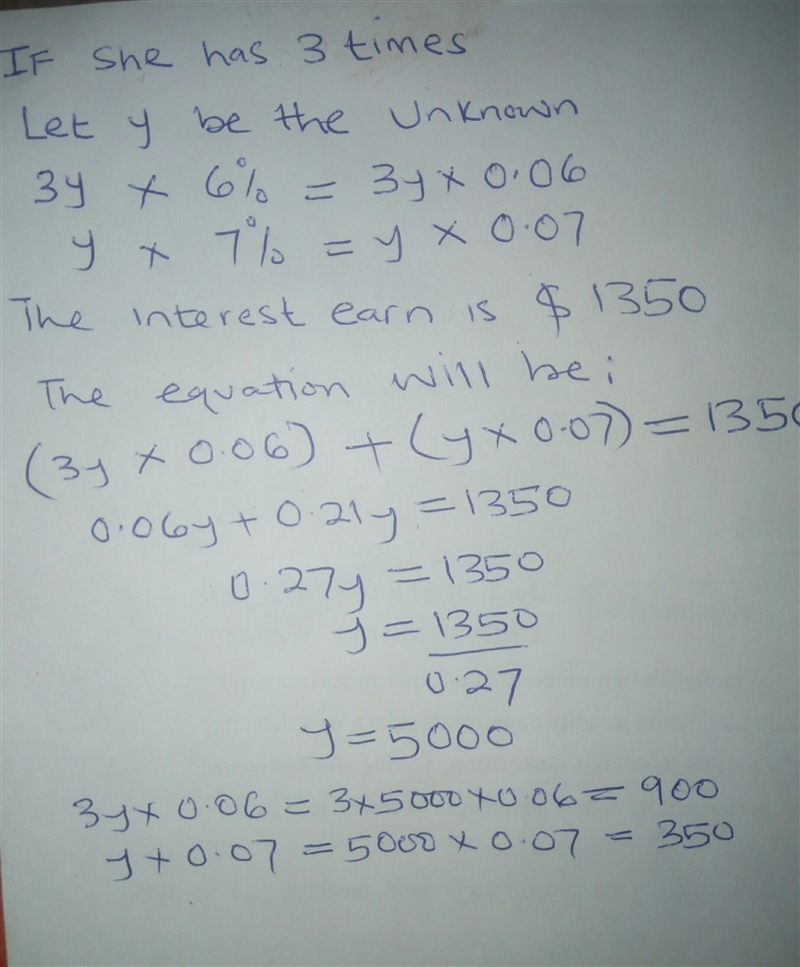 IF She has 3 times
Let y be the Unknown
3y × 6% = 3y × 0.06
y × 7% = y × 0.07
The interest earn is $ 1350
The equation will be;
(3y × 0.06) + (y × 0.07) = 1350
0.06y + 0.21y = 1350
0.27y = 1350
y = 1350
0.27
y = 5000
3y × 0.06 = 3×5000×0.06 = 900
y + 0.07 = 5000 × 0.07 = 350